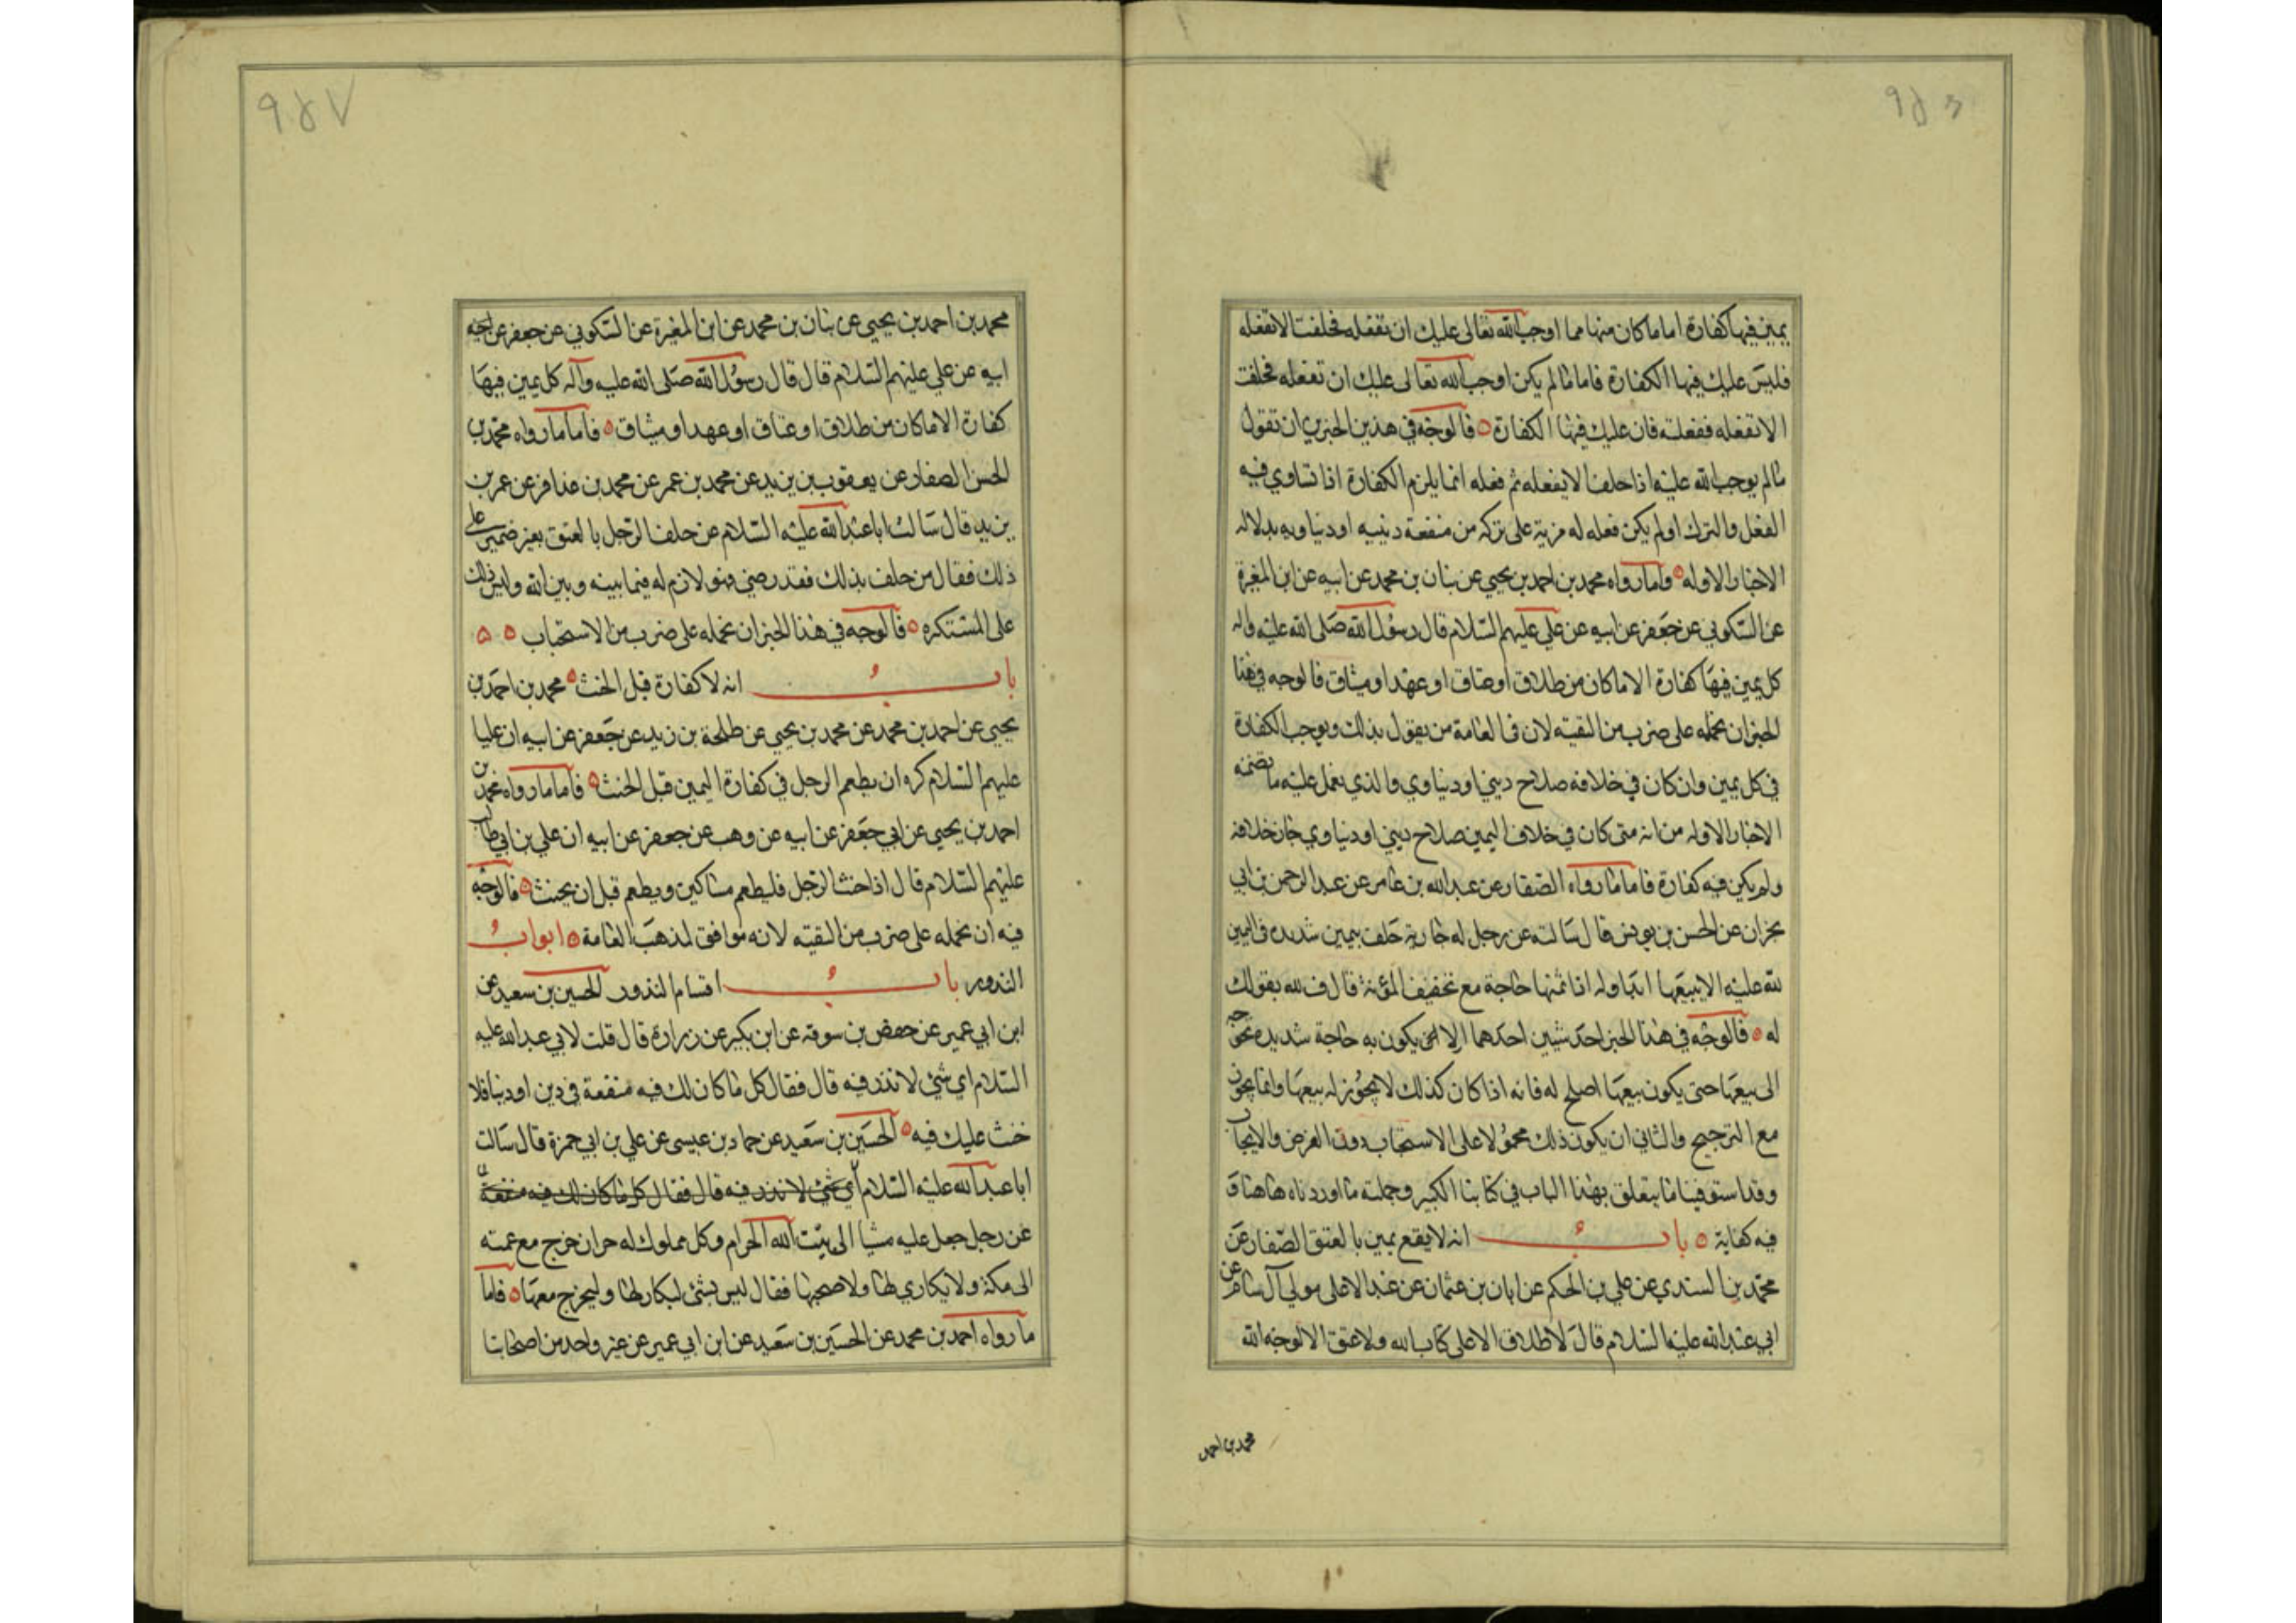 ٩٥٦
يمين فيها كفارة اما ما كان منها مما اوجب الله تعالى عليك ان تفعله فحلفت الا تفعله
فليس عليك فيها الكفارة فاما ما لم يكن اوجب الله تعالى عليك ان تفعله فحلفت
الا تفعله ففعلته فان عليك فيها الكفارة ٥ فالوجه في هذين الخبرين ان تقول
ما لم يوجب الله عليه اذا حلف الا يفعله ثم فعله انما يلزم الكفارة اذا تساوي فيه
الفعل والترك او لم يكن فعله له مزية على تركه من منفعة دينيه او دنياويه بدلاله
الاخبار الاوله ٥ واما رواه محمد بن احمد بن يحيى عن بنان بن محمد عن ابيه عن ابن المغيرة
عن السكوني عن جعفر عن ابيه عن علي عليهم السلام قال رسول الله صلى الله عليه واله
كل يمين فيها كفارة الا ما كان من طلاق او عتاق او عهد او ميثاق فالوجه في هذا
الخبر ان نحمله على ضرب من التقيه لان في العامة من يقول بذلك ويوجب الكفارة
في كل يمين وان كان في خلافه صلاح ديني او دنياوي والذي يعمل عليه ما تضمنه
الاخبار الاوله من انه متى كان في خلاف اليمين صلاح ديني او دنياوي جاز خلافه
ولم يكن فيه كفارة فاما ما رواه الصفار عن عبد الله بن عامر عن عبد الرحمن بن ابي
نجران عن الحسن بن يونس قال سالته عن رجل له جارية حلف بيمين شديده في اليمين
لله عليه الا يبيعها ابدا وله اذا ثمنها حاجة مع تخفيف المؤنة قال ف لله بقولك
له ٥ فالوجه في هذا الخبر احد شيئين احدهما الا يكون به حاجة شديده محوجه
الى بيعها حتى يكون بيعها اصلح له فانه اذا كان كذلك لا يجوز له بيعها وانما يجوز
مع الترجيح والثاني ان يكون ذلك محمولا على الاستحباب دون الفرض والايجاب
وقد استوفينا ما يتعلق بهذا الباب في كتابنا الكبير وجملته ما اوردناه هاهنا و
فيه كفاية ٥ باب انه لا يقع يمين بالعتق الصفار عن
محمد بن السندي عن علي بن الحكم عن ابان بن عثمان عن عبد الاعلى مولى آل سام عن
ابي عبد الله عليه السلام قال لا طلاق الا على كتاب الله ولا عتق الا لوجه الله
محمد بن احمد
٩٥٧
محمد بن احمد بن يحيى عن بنان بن محمد عن ابن المغيرة عن السكوني عن جعفر عن
ابيه عن علي عليهم السلام قال قال رسول الله صلى الله عليه وآله كل يمين فيها
كفارة الا ما كان من طلاق او عتاق او عهد او ميثاق ٥ فاما ما رواه محمد بن
الحسن الصفار عن يعقوب بن يزيد عن محمد بن عمر عن محمد بن عذافر عن عمر بن
يزيد قال سالت ابا عبد الله عليه السلام عن حلف الرجل بالعتق بغير ضمير على
ذلك فقال من حلف بذلك فقد رضي وهو لازم له فيما بينه وبين الله وليس ذلك
على المستكره ٥ فالوجه في هذا الخبر ان نحمله على ضرب من الاستحباب ٥ ٥
باب انه لا كفارة قبل الحنث ٥ محمد بن احمد بن
يحيى عن احمد بن محمد عن محمد بن يحيى عن طلحة بن زيد عن جعفر عن ابيه ان عليا
عليهم السلام كره ان يطعم الرجل في كفارة اليمين قبل الحنث ٥ فاما ما رواه محمد بن
احمد بن يحيى عن ابي جعفر عن ابيه عن وهب عن جعفر عن ابيه ان علي بن ابي طالب
عليهم السلام قال اذا حنث الرجل فليطعم مساكين ويطعم قبل ان يحنث ٥ فالوجه
فيه ان نحمله على ضرب من التقيه لانه موافق لمذهب العامة ٥ ابواب
النذور باب اقسام النذور الحسين بن سعيد عن
ابن ابي عمير عن حفص بن سوقه عن ابن بكير عن زرارة قال قلت لابي عبد الله عليه
السلام اي شئ لا نذر فيه قال فقال كل ما كان لك فيه منفعة في دين او دنيا فلا
حنث عليك فيه ٥ الحسين بن سعيد عن حماد بن عيسى عن علي بن ابي حمزة قال سالت
ابا عبد الله عليه السلام اي شئ لا نذر فيه قال فقال كل ما كان لك فيه منفعة
عن رجل جعل عليه مشيا الى بيت الله الحرام وكل مملوك له حر ان خرج مع عمته
الى مكة ولا يكاري لها ولا صحبها فقال ليس بشئ ليكار لها وليخرج معها ٥ فاما
ما رواه احمد بن محمد عن الحسين بن سعيد عن ابن ابي عمير عن غير واحد من اصحابنا